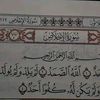 سُورَةُ الإِخْلَاصِ
بِسْمِ ٱللَّهِ ٱلرَّحْمَٰنِ ٱلرَّحِيمِ
قُلْ هُوَ ٱللَّهُ أَحَدٌ ۝ ٱللَّهُ ٱلصَّمَدُ ۝ لَمْ يَلِدْ وَلَمْ يُولَدْ
وَلَمْ يَكُن لَّهُۥ كُفُوًا أَحَدٌ